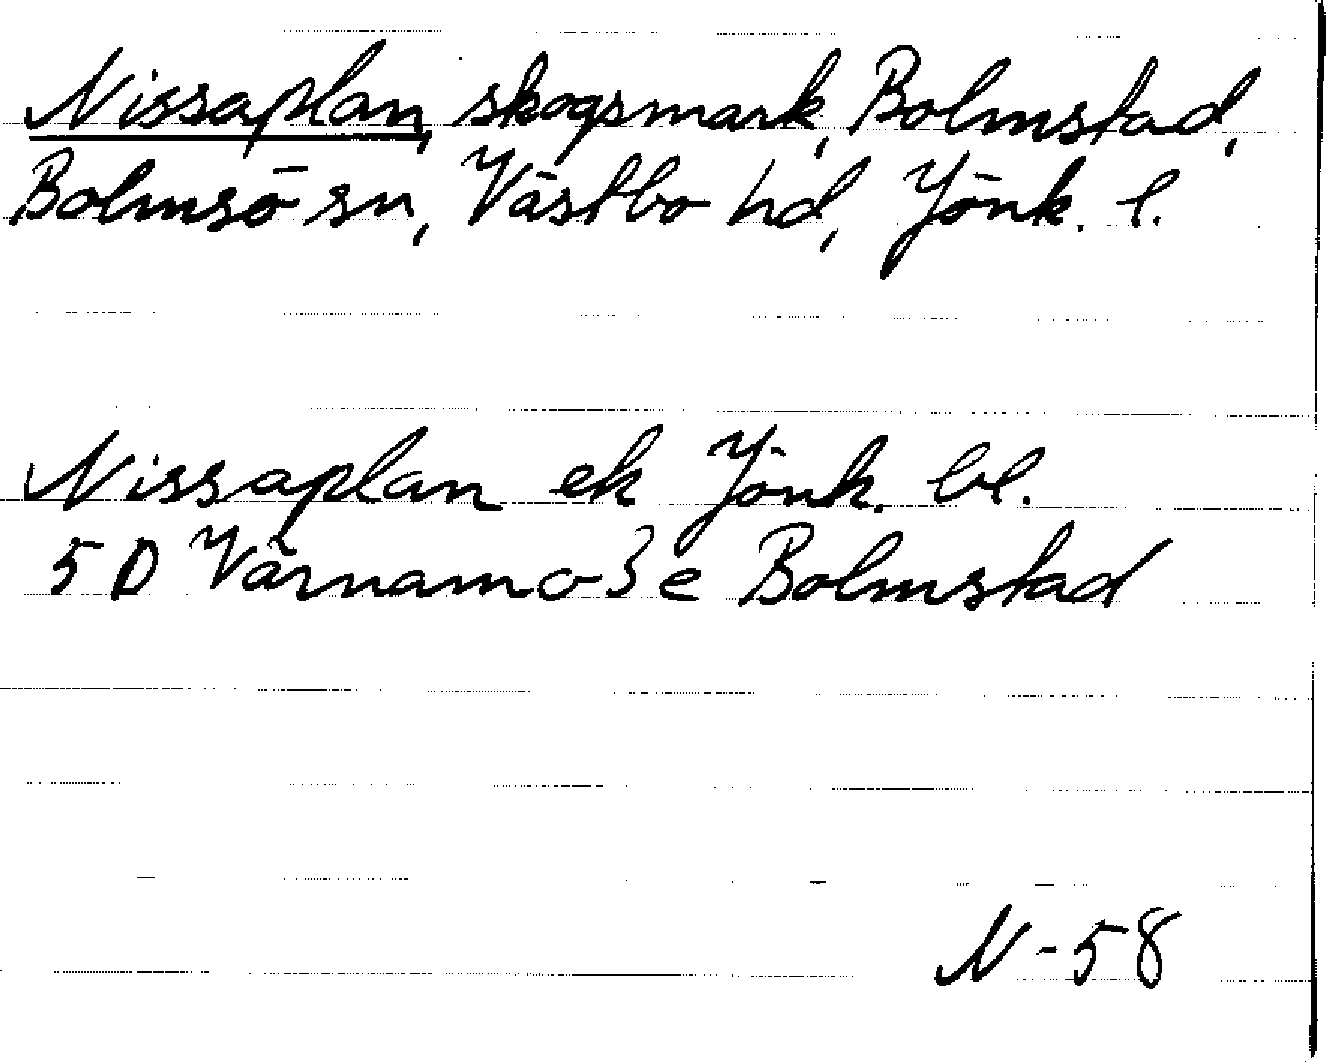 Nissaplan, skogsmark, Bolmstad,
Bolmsö sn, Västbo hd, Jönk. l.
Nissaplan ek Jönk. bl.
5 D Värnamo 3 e Bolmstad
N - 58